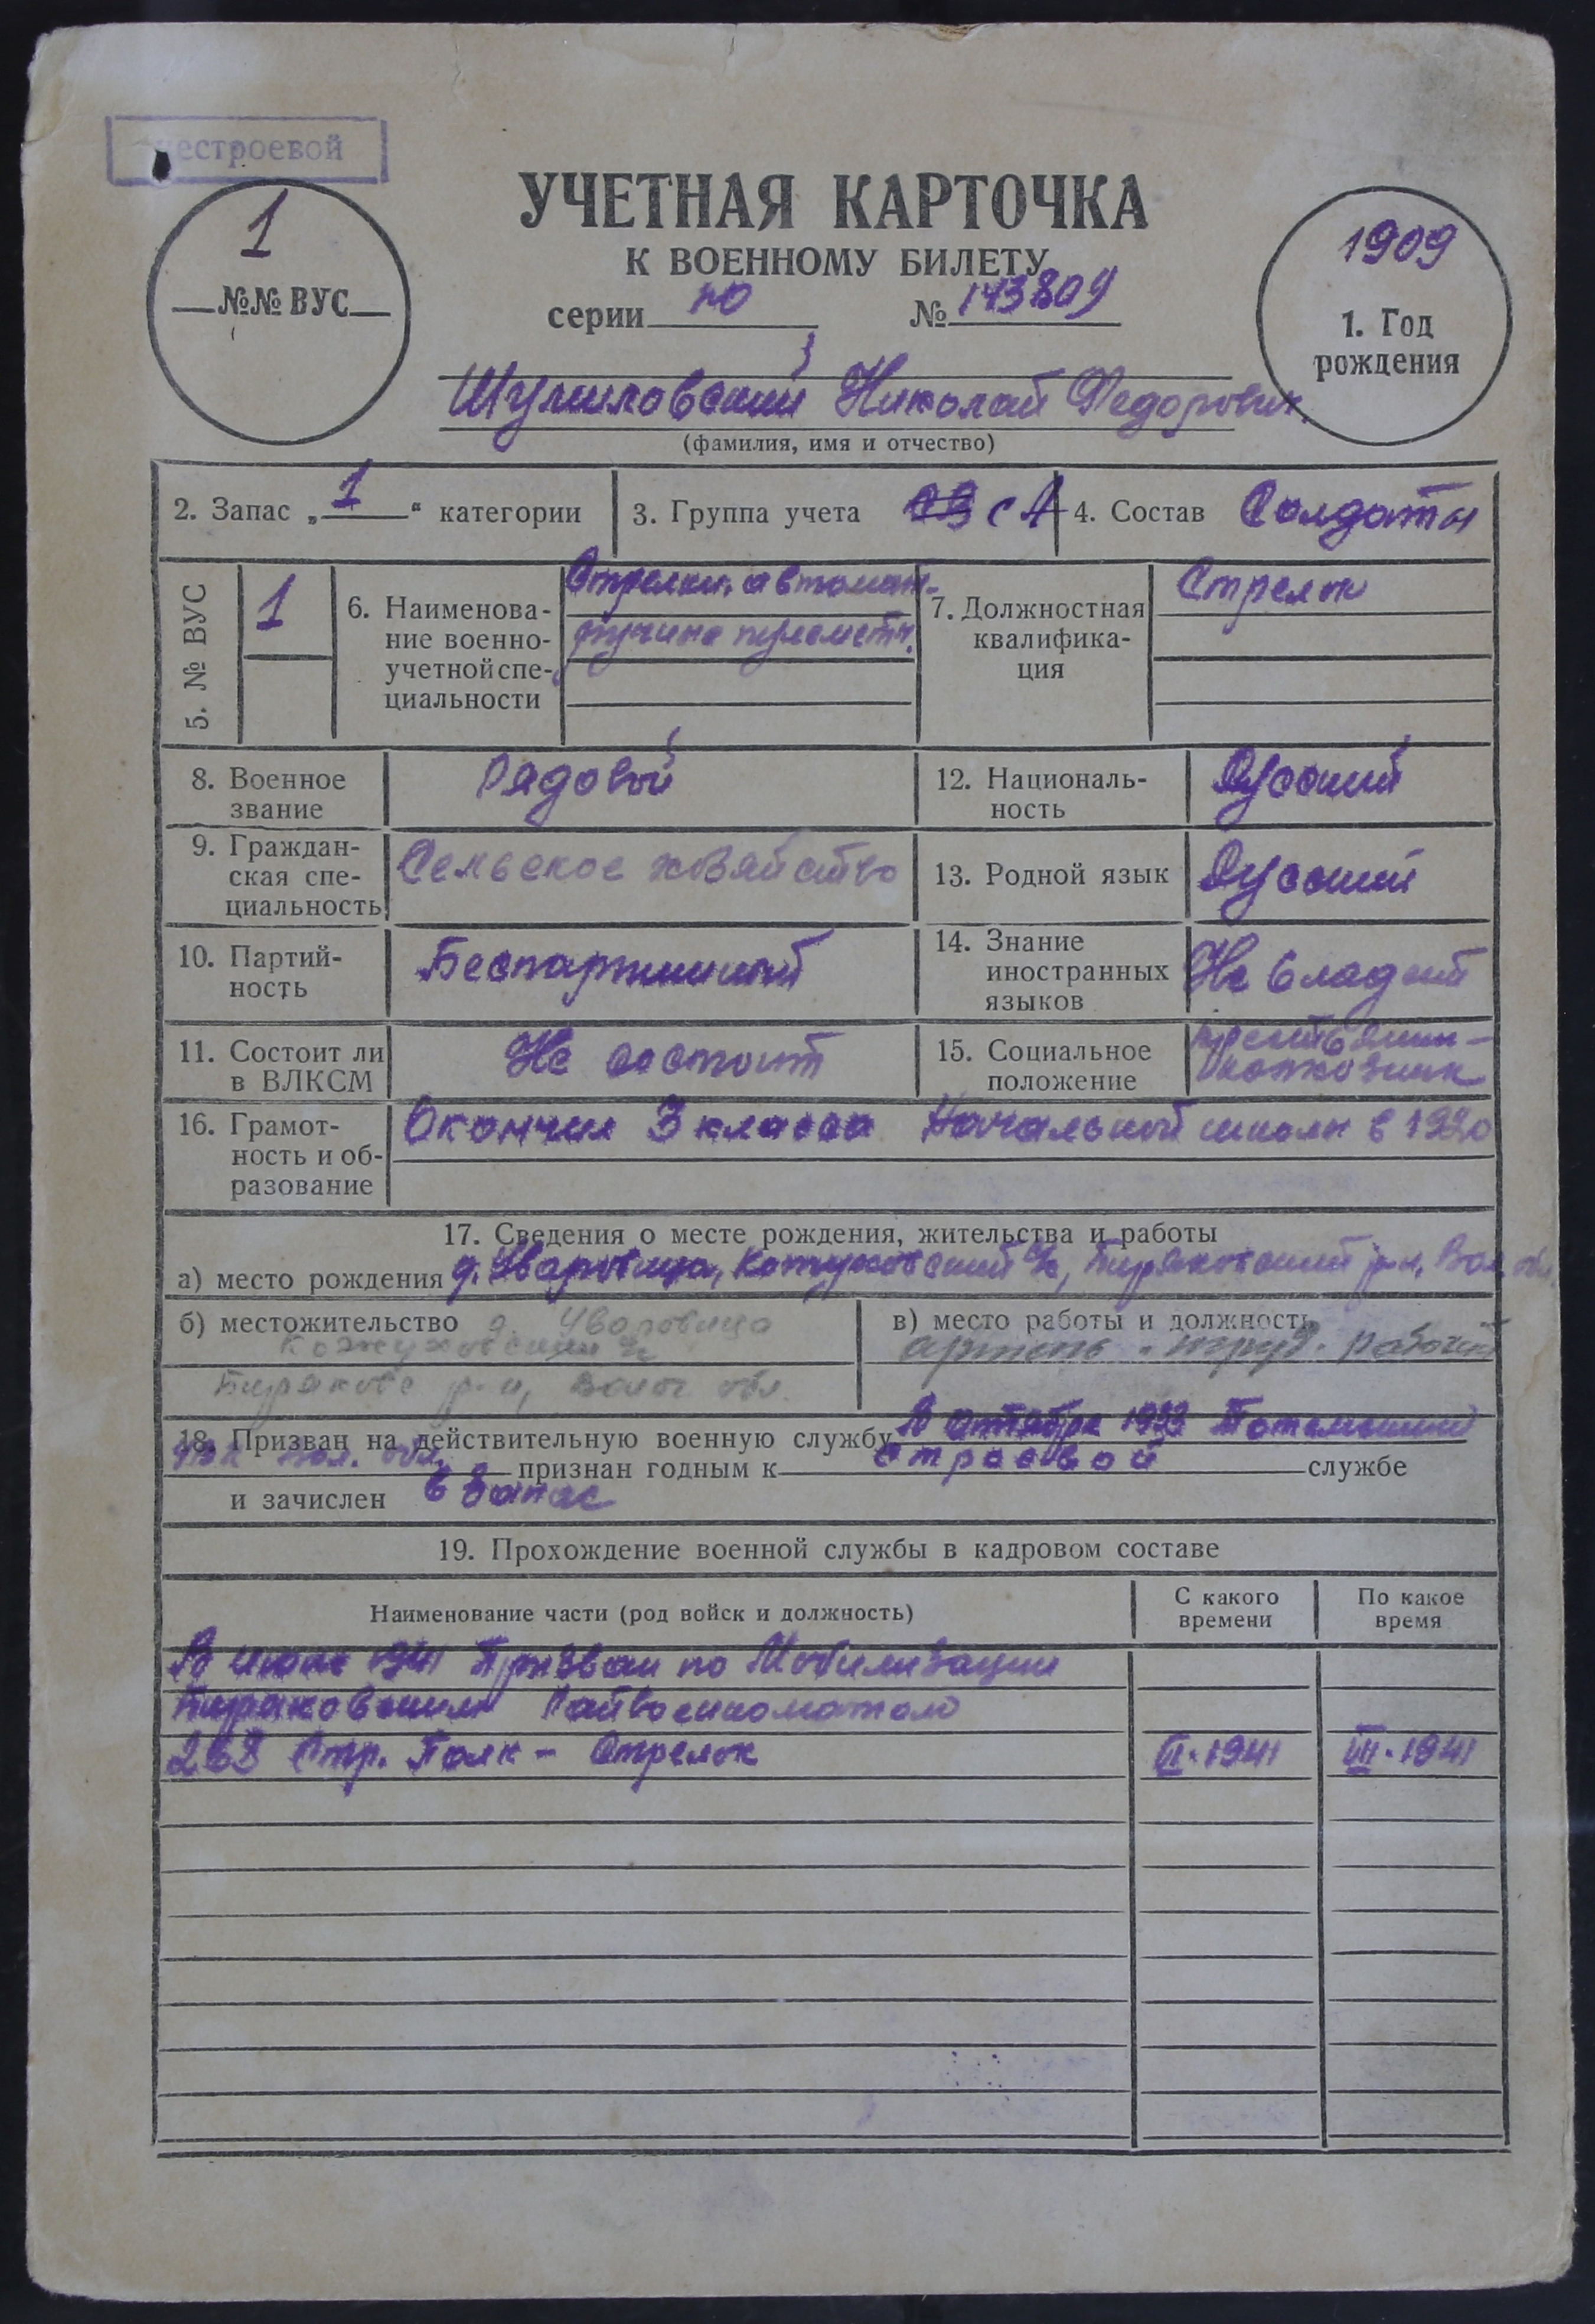 нестроевой
1
№№ ВУС
УЧЕТНАЯ КАРТОЧКА
К ВОЕННОМУ БИЛЕТУ
серии НО № 143809
1909
1. Год
рождения
Шумиловский Николай Федорович
(фамилия, имя и отчество)
2. Запас „1“ категории
3. Группа учета СА
4. Состав Солдаты
5. № ВУС
1
6. Наименова-
ние военно-
учетной спе-
циальности
Стрелки, автомат-
ручные пулеметч.
7. Должностная
квалифика-
ция
Стрелок
8. Военное
звание
Рядовой
12. Националь-
ность
Русский
9. Граждан-
ская спе-
циальность
Сельское хозяйство
13. Родной язык
Русский
10. Партий-
ность
Беспартийный
14. Знание
иностранных
языков
Не владеет
11. Состоит ли
в ВЛКСМ
Не состоит
15. Социальное
положение
крестьянин-
колхозник
16. Грамот-
ность и об-
разование
Окончил 3 класса Начальной школы в 1920
17. Сведения о месте рождения, жительства и работы
а) место рождения д. Уваровица, Кожуховский с/с, Биряковский р-н, Вол. обл.
б) местожительство д. Уваровица
Кожуховский с/с
Биряковс р-н, Волог обл.
в) место работы и должность
артель рабочий
18. Призван на действительную военную службу В октябре 1933 Тотемский
РВК Вол. обл. признан годным к строевой службе
и зачислен в запас
19. Прохождение военной службы в кадровом составе
Наименование части (род войск и должность)
С какого
времени
По какое
время
В 1941 Призван по Мобилизации
Биряковским Райвоенкоматом
268 Стр. Полк - Стрелок VI-1941 VIII-1941